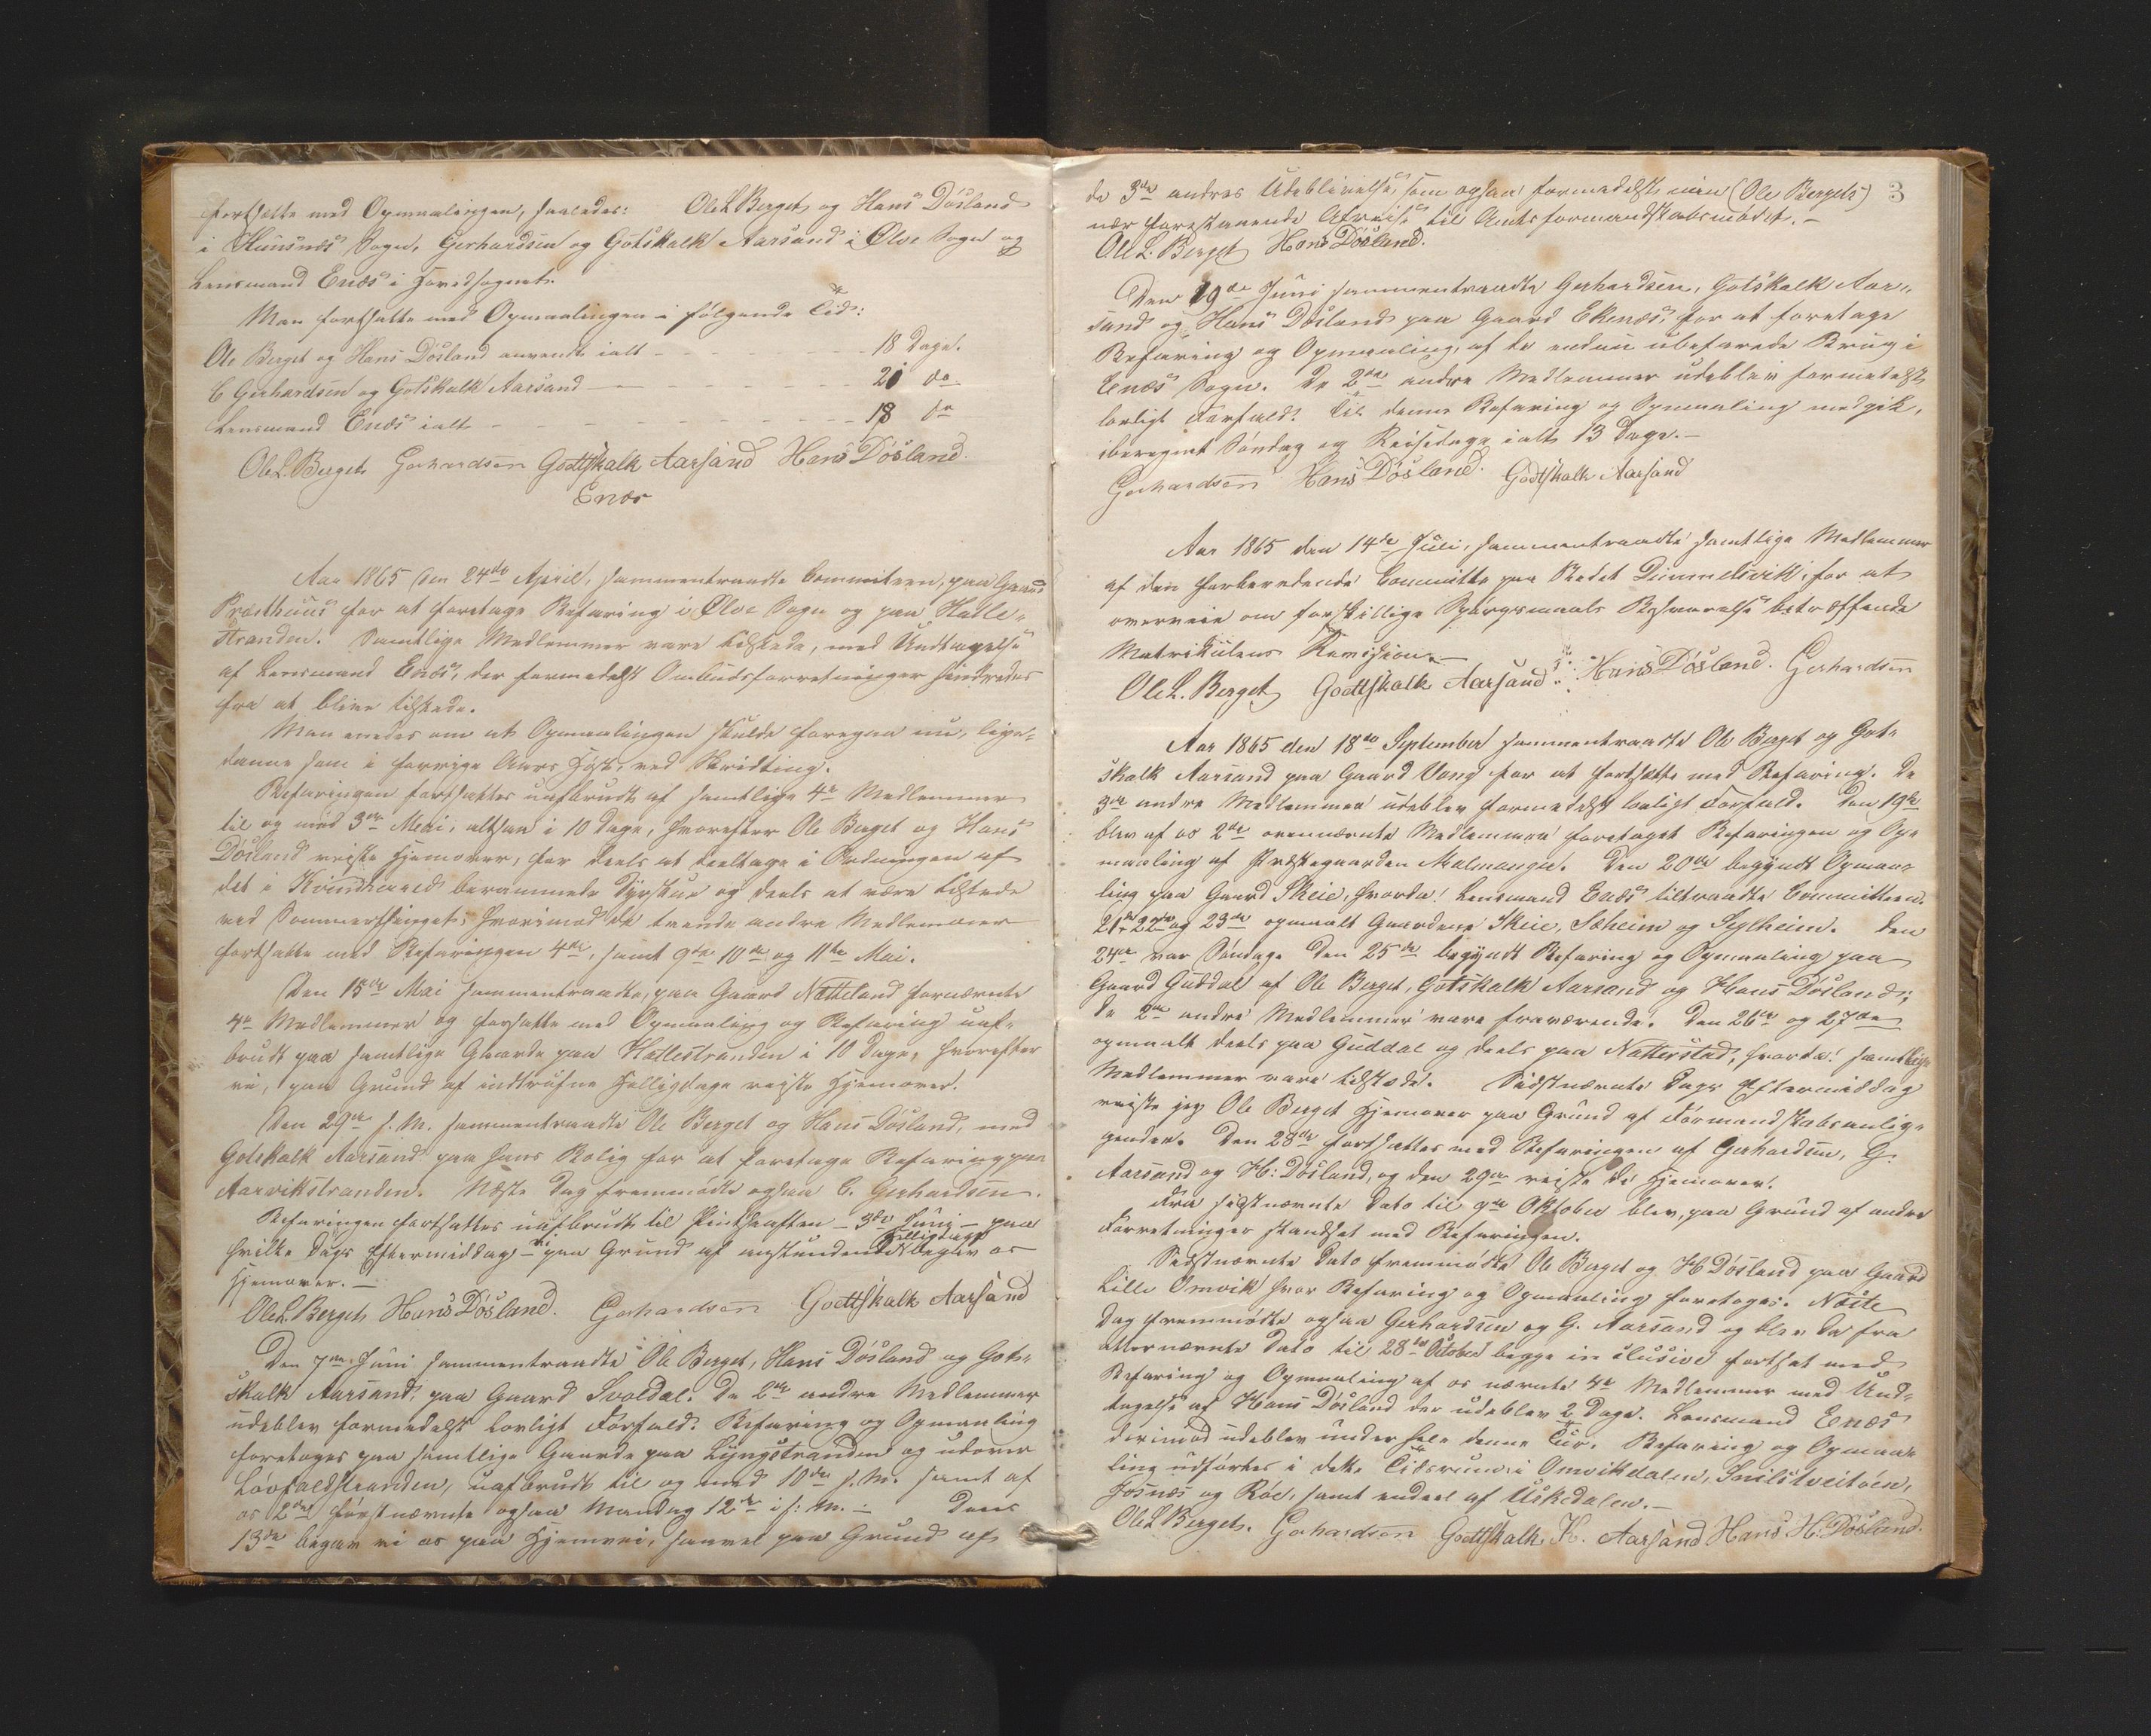 fortsatte med Opmaalingen, saaledes: Ole L Berget og Hans Døsland
i Huusnæs Sogn, Gerhardsen og Gotskalk Aarsand i Ølve Sogn og
Lensmand Enæs i Hovedsognet.
Man fortsatte med Opmaalingen i følgende Tid:
Ole Berget og Hans Døsland anvendte ialt - - - - 18 Dage.
C Gerhardsen og Gotskalk Aarsand - - - - 20 do
Lensmand Enæs ialt - - - - 18 do
Ole L. Berget Gerhardsen Godtskalk Aarsand Hans Døsland.
Enæs
Aar 1865 den 24de April, sammentraadte Commiteen, paa Gaard
Præsthuus for at foretage Befaring i Ølve Sogn og paa Hatle-
stranden. Samtlige Medlemmer vare tilstede, med Undtagelse
af Lensmand Enæs, der formedelst Ombudsforretninger hindredes
fra at blive tilstede.
Man enedes om at Opmaalingen skulde foregaa nu, lige-
danne som i forrige Aars Høst, ved Skridting.
Befaringen fortsattes uafbrudt af samtlige 4re Medlemmer
til og med 3die Mai, altsaa i 10 Dage, hvorefter Ole Berget og Hans
Døsland reiste hjemover, for deels at deeltage i Ordningen af
det i Kvindherred berammede Dyrskue og deels at være tilstede
ved Sommerthinget; hvorimod de tvende andre Medlemmer
fortsatte med Befaringen 4de, samt 9de 10de og 11te Mai.
Den 15de Mai sammentraadte, paa Gaard Nætteland fornævnte
4re Medlemmer og forsatte med Opmaaling og Befaring uaf-
brudt paa samtlige Gaarde paa Hatlestranden i 10 Dage, hvorefter
vi, paa Grund af indtrufne Helligdage reiste hjemover.
Den 29de s. M. sammentraadte Ole Berget og Hans Døsland, med
Gotskalk Aarsand paa hans Bolig for at foretage Befaring paa
Aarvikstranden. Næste Dag fremmødte ogsaa C. Gerhardsen.
Befaringen fortsattes uafbrudt til Pintseaften - 3de Juni - paa
hvilke Dags Eftermiddag - vi paa Grund af anstundende Helligdage begav os
hjemover. -
Ole L. Berget Hans Døsland. Gerhardsen Godtskalk Aarsand
Den 7de Juni sammentraadte Ole Berget, Hans Døsland og Gots-
kalk Aarsand, paa Gaard Svoldal. De 2de andre Medlemmer
udeblev formedelst lovligt Forfald. Befaring og Opmaaling
foretoges paa samtlige Gaarde paa Lyngstranden og udover
Løvfaldstranden, uafbrudt til og med 10de s. M. samt af
os 2de førstnævnte ogsaa Mandag 12te i s: M. - Deels
13de begav vi os paa Hjemvei, saavel paa Grund af
3
de 3de andres Udeblivelse, som ogsaa formedelst min (Ole Bergets)
nær forestaaende Afreise til Amtsformandskabsmødet. -
Ole L. Berget Hans Døsland.
Den 19de Juni sammentraadte Gerhardsen, Gotskalk Aar-
sand og Hans Døsland paa Gaard Ekenæs, for at foretage
Befaring og Opmaaling, af de endnu ubefarede Brug i
Enæs Sogn. De 2de andre Medlemmer udeblev formedelst
lovligt Forfald. Til denne Befaring og Opmaaling medgik,
iberegnet Søndag og Reisedage ialt 13 Dage. -
Gerhardsen Hans Døsland. Godtskalk Aarsand
Aar 1865 den 14de Juli, sammentraadte samtlige Medlemmer
af den forberedende Committe paa Stedet Dimmelsvik, for at
overveie om forskillige Spørgsmaals Besvarelse betræffende
Matrikulens Revision. -
Ole L. Berget Godtskalk Aarsand Hans Døsland. Gerhardsen
Aar 1865 den 18de September sammentraadte Ole Berget og Got-
skalk Aarsand paa Gaard Vang for at fortsætte med Befaring. De
3de andre Medlemmer udeblev formedelst lovligt Forfald. Den 19de
blev af os 2de ovennævnte Medlemmer foretaget Befaringen og Op-
maaling af Præstegaarden Malmanger. Den 20de begyndt Opmaa-
ling paa Gaard Skeie, hvorda Lensmand Enæs tiltraadte Committeen.
21de 22de og 23de opmaalt Gaardene Skeie, Sæheim og Sylheim. Den
24de var Søndag. Den 25de begyndt Befaring og Opmaaling paa
Gaard Guddal af Ole Berget, Gotskalk Aarsand og Hans Døsland;
de 2de andre Medlemmer vare fraværende. Den 26de og 27de
opmaalt deels paa Guddal og deels paa Natterstad, hvorda samtlige
Medlemmer vare tilstede. Sidstnævnte Dags Eftermiddag
reiste jeg Ole Berget hjemover paa Grund af Formandskabsanlig-
gender. Den 28de fortsattes med Befaringen af Gerhardsen, G.
Aarsand og H: Døsland, og den 29de reiste de hjemover.
Fra sidstnævnte Dato til 9de Oktober blev, paa Grund af andre
Forretninger standset med Befaringen.
Sidstnævnte Dato fremmødte Ole Berget og H Døsland paa Gaard
Lille Omvik hvor Befaring og Opmaaling foretoges. Næste
Dag fremmødte ogsaa Gerhardsen og G. Aarsand og blev da fra
alternævnte Dato til 28de October begge in clusive fortsat med
Befaring og Opmaaling af os nævnte 4re Medlemmer med Und-
tagelse af Hans Døsland der udeblev 2 Dage. Lensmand Enæs
derimod udeblev under hele denne Tur. Befaring og Opmaa-
ling udførtes i dette Tidsrum i Omvikdalen, Snilstveitøen,
Fosnæs og Røe, samt endeel af Uskedalen. -
Ole L Berget. Gerhardsen Godtskalk K. Aarsand Hans H: Døsland.